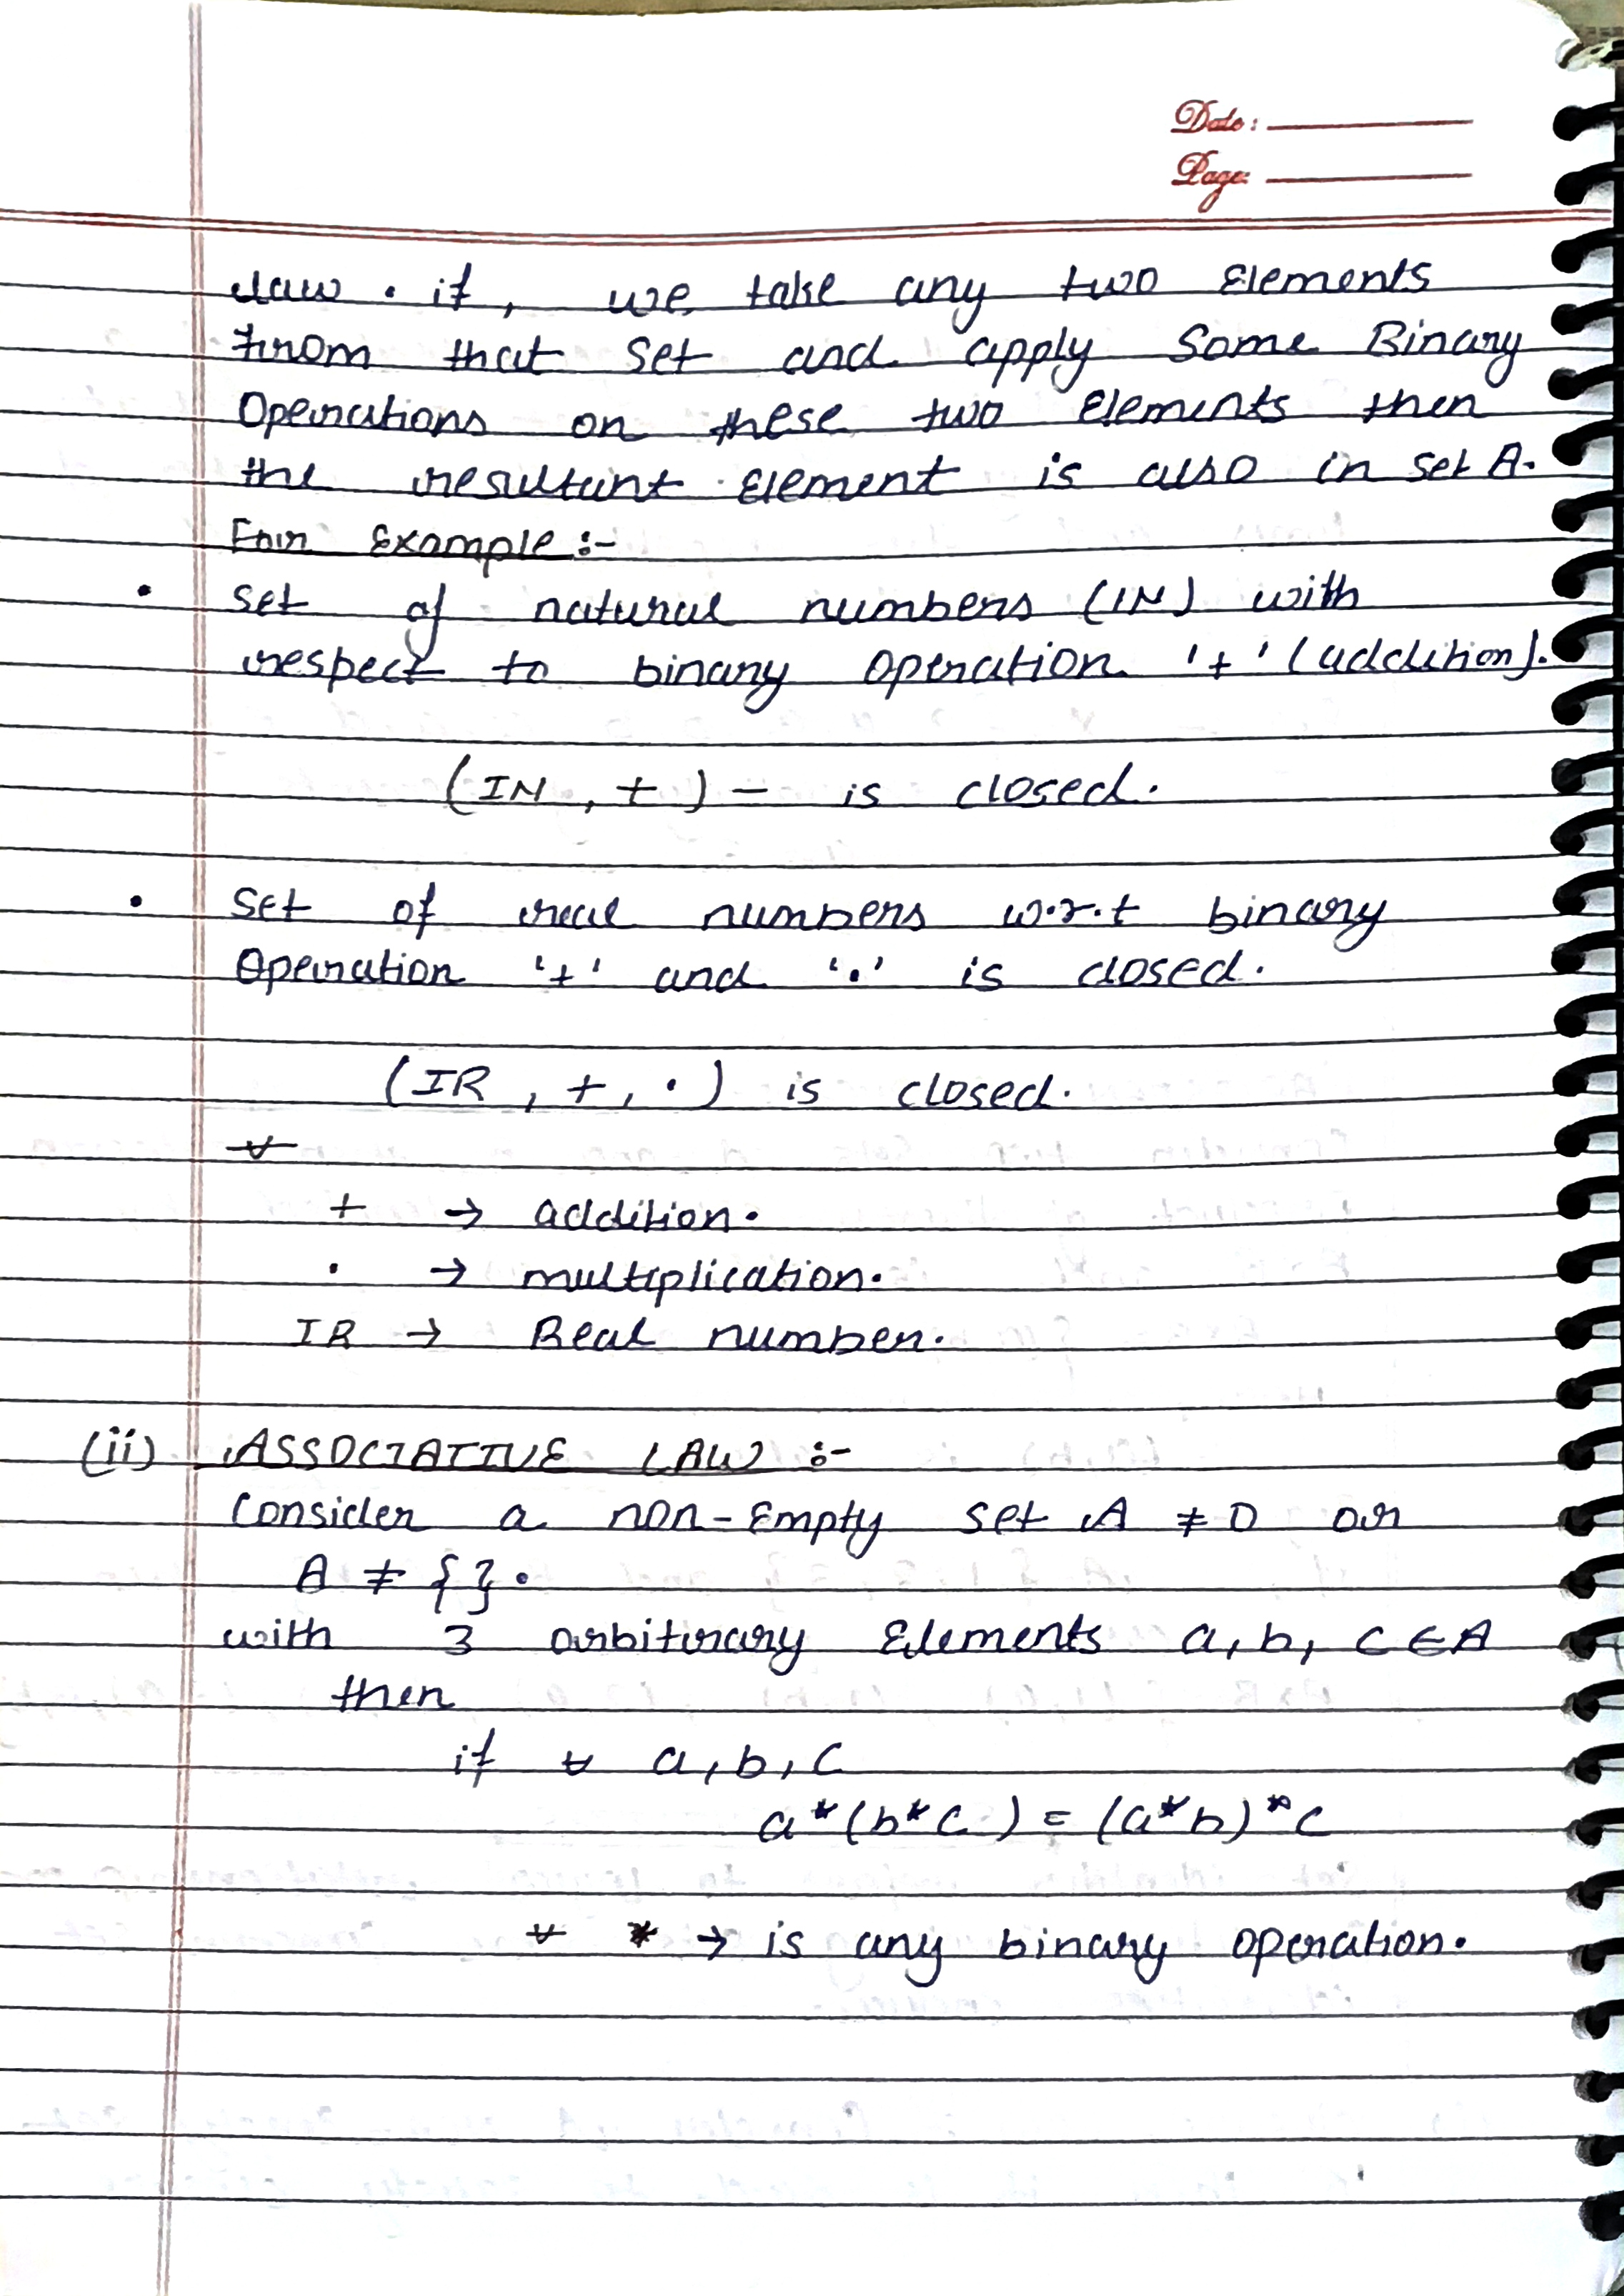 Date:
Page:
law. if, we take any two Elements
from that set and apply some Binary
Operations on these two Elements then
the resultant Element is also in set A.
For Example:-
• set of natural numbers (IN) with
respect to binary operation '+' (addition).
(IN, +) - is closed.
• Set of real numbers w.r.t binary
Operation '+' and '•' is closed.
(IR, +, •) is closed.
∀
+ → addition.
• → multiplication.
IR → Real number.
(ii) ASSOCIATIVE LAW :-
Consider a non-Empty set A ≠ 0 or
A ≠ { }.
with 3 arbitrary Elements a, b, c ∈ A
then
if ∀ a, b, c
a*(b*c) = (a*b)*c
∀ * → is any binary operation.